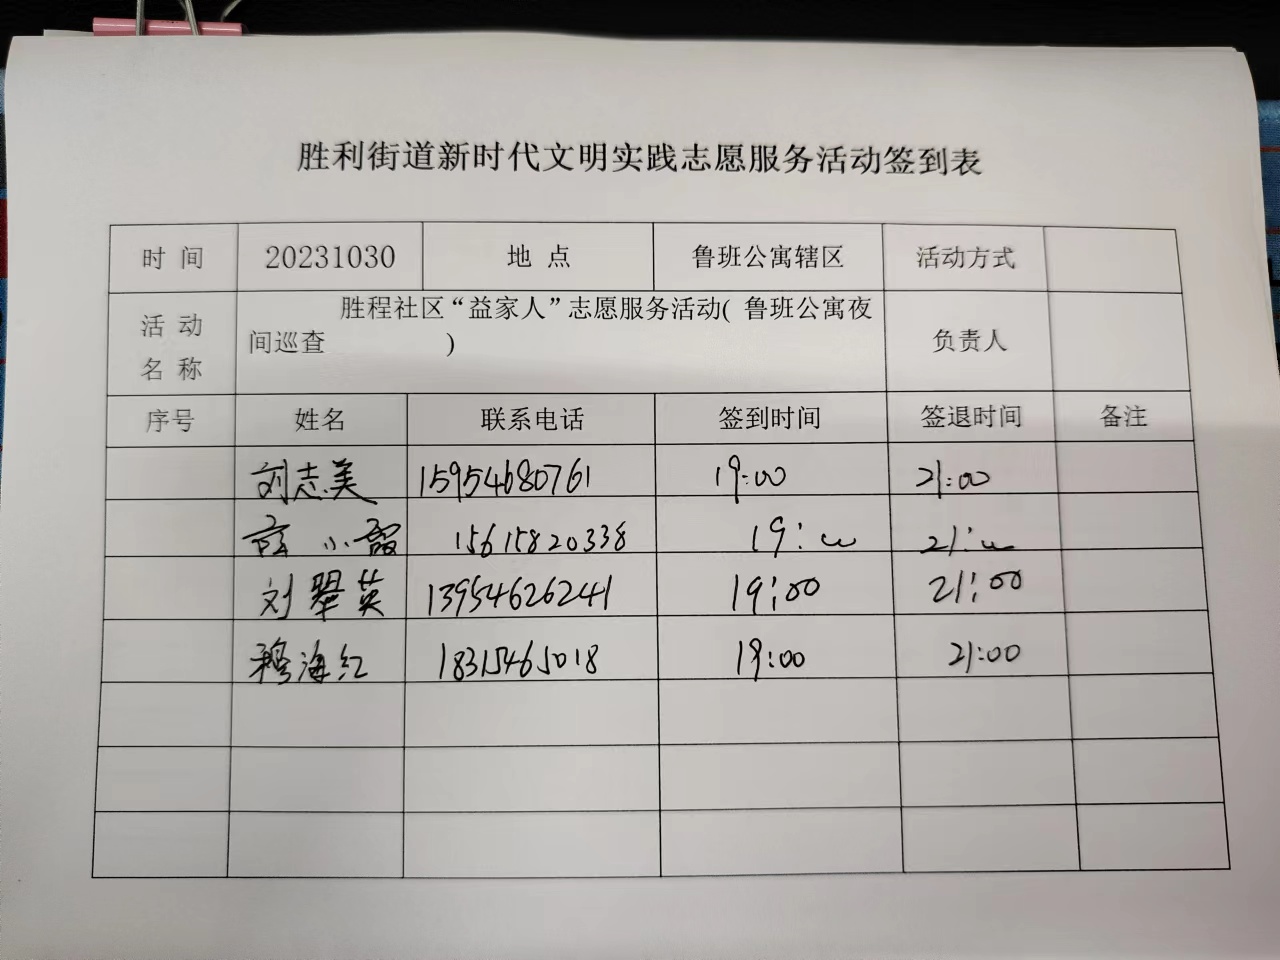 胜利街道新时代文明实践志愿服务活动签到表
时 间 20231030 地 点 鲁班公寓辖区 活动方式
活 动 名 称 胜程社区“益家人”志愿服务活动( 鲁班公寓夜 负责人
间巡查 )
序号 姓名 联系电话 签到时间 签退时间 备注
刘志美 15954680761 19:00 21:00
薛小霞 15615820338 19:00 21:00
刘翠英 13954626241 19:00 21:00
穆海红 18315465018 19:00 21:00